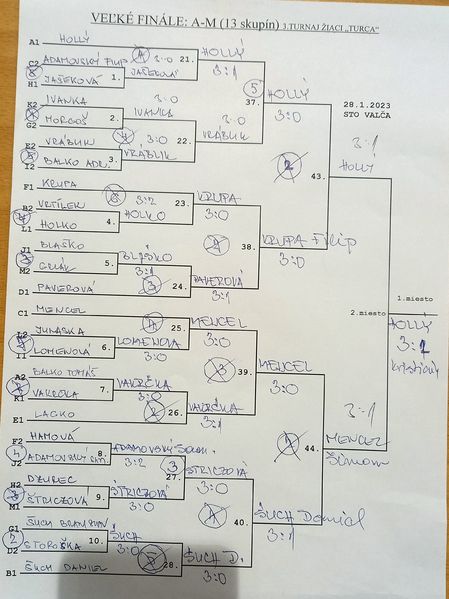 VEĽKÉ FINÁLE: A-M (13 skupín) 3.TURNAJ ŽIACI „TURCA"
A1 HOLLÝ
C2 ADAMOVSKÝ FILIP
3:0
21.
HOLLÝ
3:1
H1 JAŠEKOVÁ
1.
JAŠEKOVÁ
K2 IVANKA
3:0
5
37.
HOLLÝ
3:0
28.1.2023
STO VALČA
MORGOŠ
2.
IVANKA
G2
3:0
VRÁBLIK
4
3:0
22.
VRÁBLIK
3:1
E2
I2 BALKO ADR.
3.
VRÁBLIK
2
43.
HOLLÝ
F1 KRUPA
B2 VRTÍLEK
3:2
23.
KRUPA
3:0
L1 HOLKO
4.
HOLKO
J1 BLAŠKO
38.
KRUPA Filip
3:0
M2
5.
BLAŠKO
3:1
3
24.
PAVEROVÁ
3:1
D1 PAVEROVÁ
2.miesto
1.miesto
HOLLÝ
3:2
Kristián
C1 MENCEL
L2 JURÁSKA
25.
MENCEL
3:0
I1 LOMENOVÁ
6.
LOMENOVÁ
3:0
A2 BALKO TOMÁŠ
3
39.
MENCEL
3:0
K1 VAVRČKA
7.
VAVRČKA
3:0
2
26.
VAVRČKA
3:1
E1 LACKO
3:1
F2 HAMOVÁ
44.
MENCEL
Šimon
J2 ADAMOVSKÝ SAM.
8.
ADAMOVSKÝ
3:2
3
27.
STRICZOVÁ
3:0
H2 DZUREC
M1 ŠTRICZOVÁ
9.
ŠTRICZOVÁ
3:0
40.
ŠUCH Daniel
3:1
G1 ŠUCH BRANISLAV
D2 STOROŠKA
10.
ŠUCH
3:0
28.
ŠUCH D.
3:0
B1 ŠUCH DANIEL